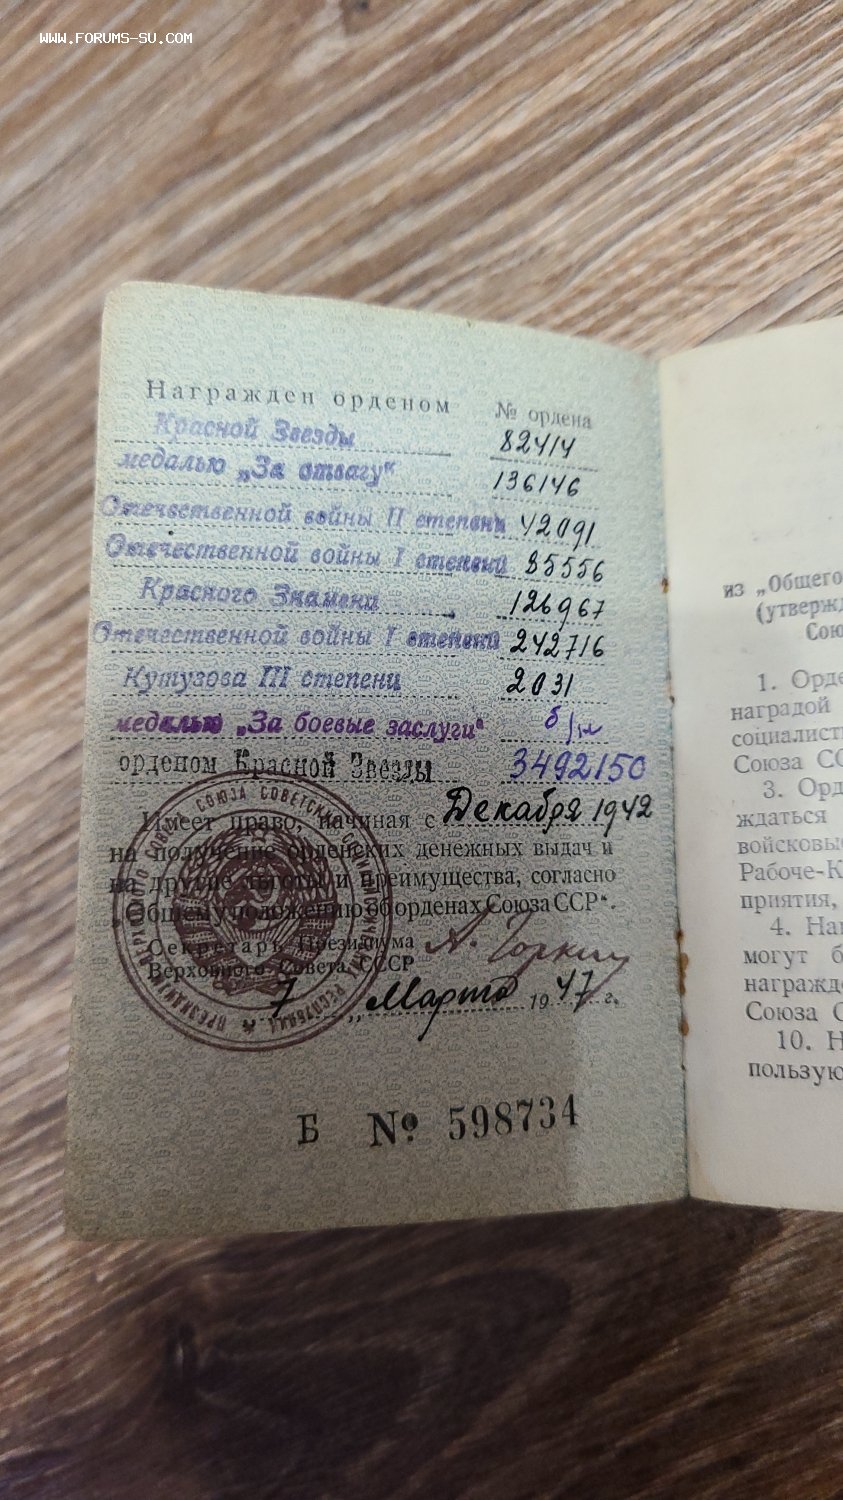 WWW.FORUMS-SU.COM
Награжден орденом № ордена
Красной Звезды 82414
медалью „За отвагу“ 136146
Отечественной войны II степени 42091
Отечественной войны I степени 85556
Красного Знамени 126967
Отечественной войны I степени 242716
Кутузова III степени 2031
медалью „За боевые заслуги“ б/н
орденом Красной Звезды 3492150
Имеет право, начиная с Декабря 1942
на получение орденских денежных выдач и
на другие льготы и преимущества, согласно
„Общему положению об орденах Союза ССР“.
Секретарь Президиума А. Горкин
Верховного Совета СССР
7 „Марта 1947 г.
Б № 598734
из „Общего
(утвержд
Сою
1. Орде
наградой
социалист
Союза СС
3. Орд
ждаться
войсковы
Рабоче-К
приятия,
4. Наг
могут б
награжде
Союза С
10. Н
пользую